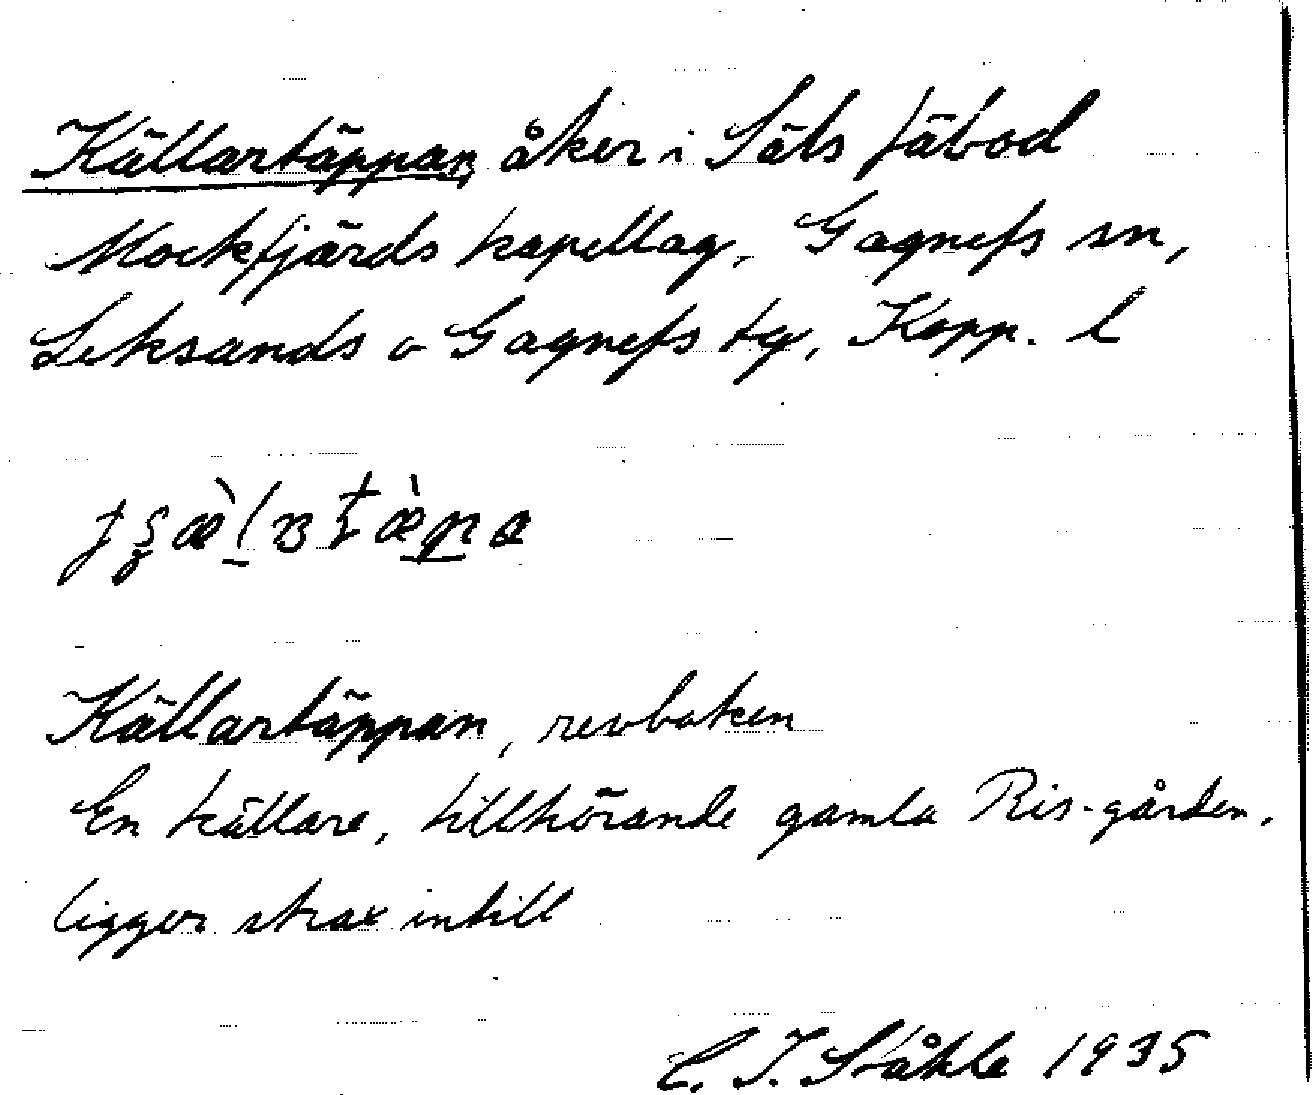 Källartäppan, åker i Säls fäbod
Mockfjärds kapellag, Gagnefs sn,
Leksands o Gagnefs tg, Kopp. l
Källartäppan, revboken
En källare, tillhörande gamla Ris-gården,
ligger strax intill
C. I. Ståhle 1935